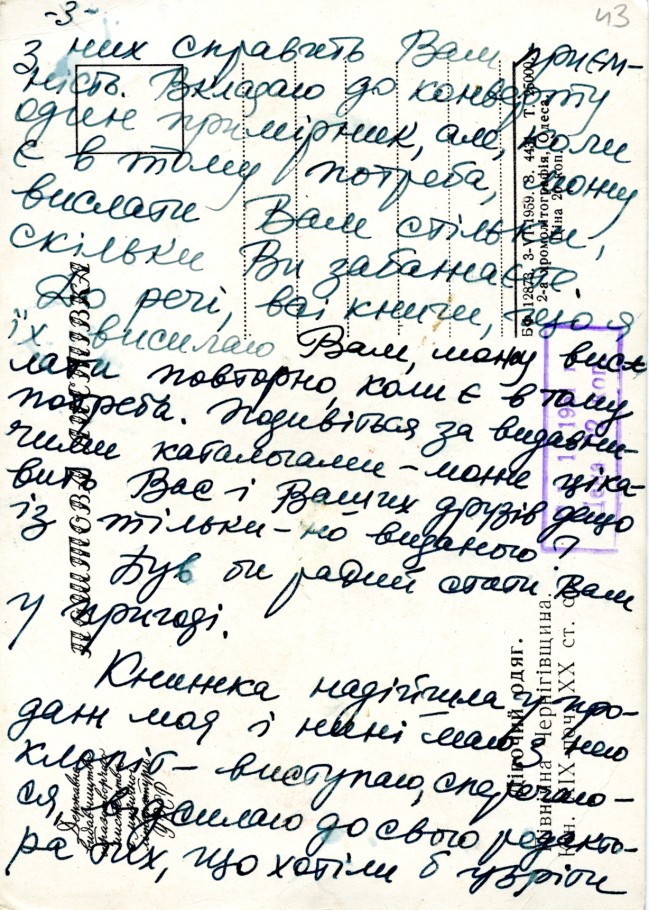 -3-
43
з них справить Вам приєм-
ність. Вкладаю до конверту
один примірник, але, коли
є в тому потреба, можу
вислати Вам стільки,
скільки Ви забажаєте.
До речі, всі книги, що я
їх висилаю Вам, можу висл-
лати повторно, коли є в тому
потреба. Подивіться за видавни-
чими каталогами – може ціка-
вить Вас і Ваших друзів дещо
із тільки-но виданого?
Був би радий стати Вам
у пригоді.
Книжка надійшла у про-
даж моя і нині маю з нею
клопіт – виступаю, сперечаю-
ся, відсилаю до свого редакто-
ра тих, що хотіли б узріти
ПОШТОВА ЛИСТІВКА
БФ 12873. 3-VI 1959. З. 443. Т. 25000.
2-а хромолітографія, Одеса.
Ціна 20 коп.
Жіночий одяг.
Північна Чернігівщина.
Кін. XIX поч. XX ст. ст.
Державне
видавництво
образотворчого
мистецтва
і музичної
літератури
УРСР